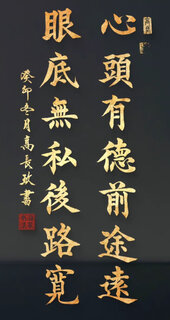 心頭有德前途遠
眼底無私後路寬
癸卯冬月高長致書